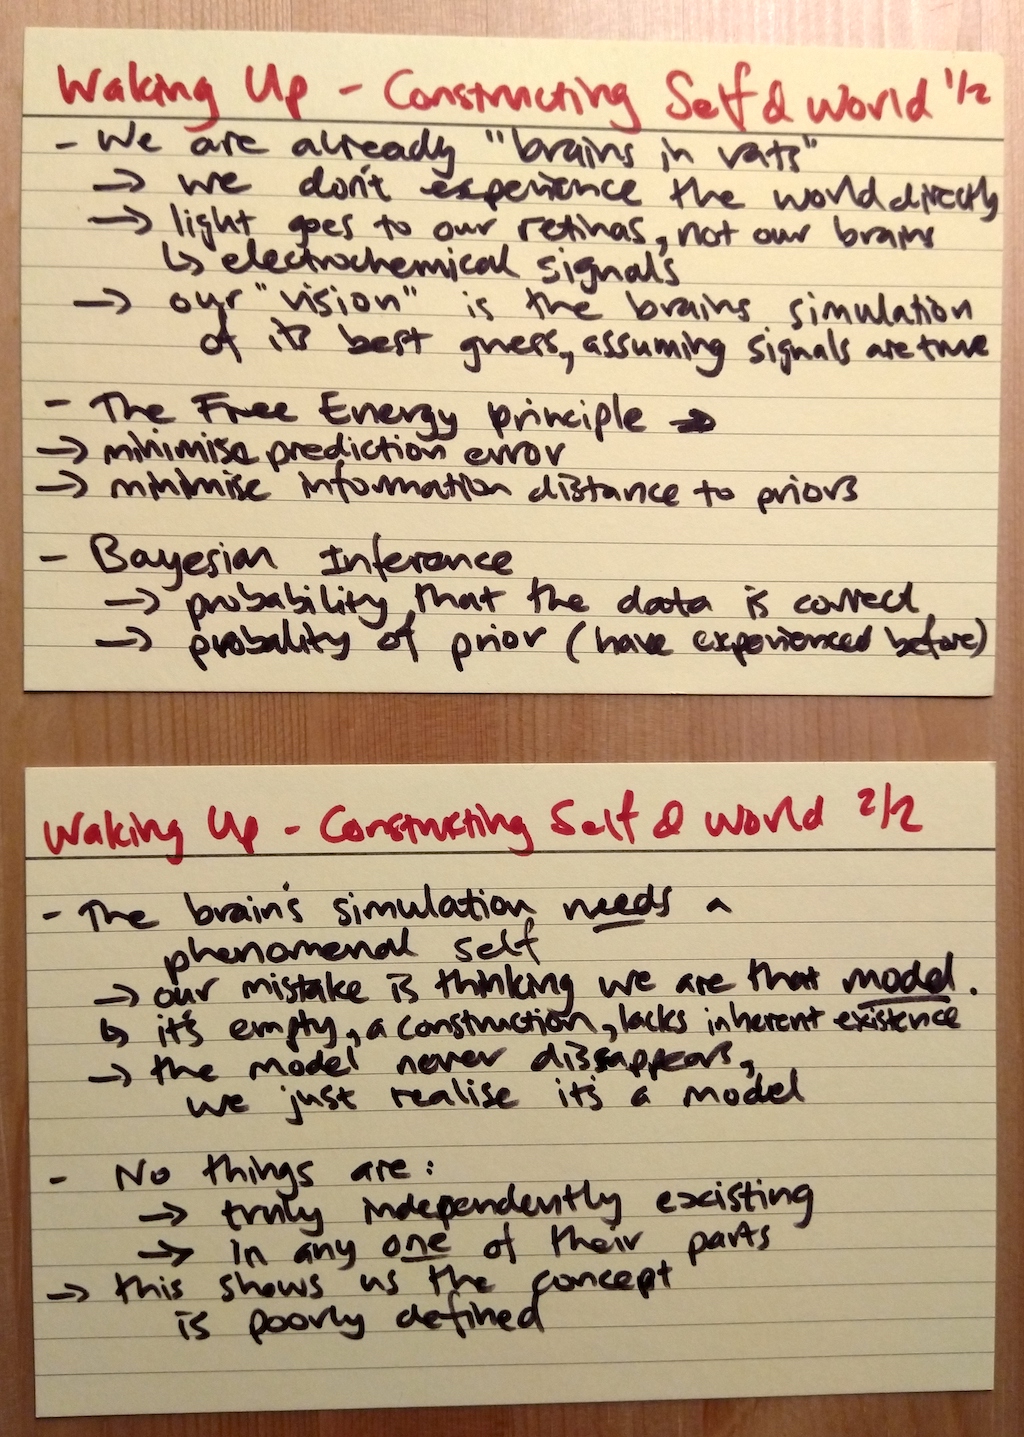 Waking Up - Constructing Self & World 1/2
- We are already "brains in vats"
→ we don't experience the world directly
→ light goes to our retinas, not our brains
↳ electrochemical signals
→ our "vision" is the brains simulation
of its best guess, assuming signals are true
- The Free Energy principle →
→ minimise prediction error
→ minimise information distance to priors
- Bayesian Inference
→ probability that the data is correct
→ probality of prior (have experienced before)
Waking Up - Constructing Self & World 2/2
- The brain's simulation needs a
phenomenal self
→ our mistake is thinking we are that model.
↳ it's empty, a construction, lacks inherent existence
→ the model never dissappears,
we just realise it's a model
- No things are:
→ truly independently existing
→ in any one of their parts
→ this shows us the concept
is poorly defined